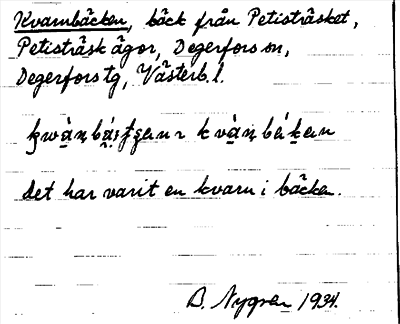 Kvarnbäcken, bäck från Petisträsket,
Petisträsk ägor, Degerfors sn,
Degerfors tg, Västerb. l.
kvàn
det har varit en kvarn i bäcken.
B. Nygren 1934.